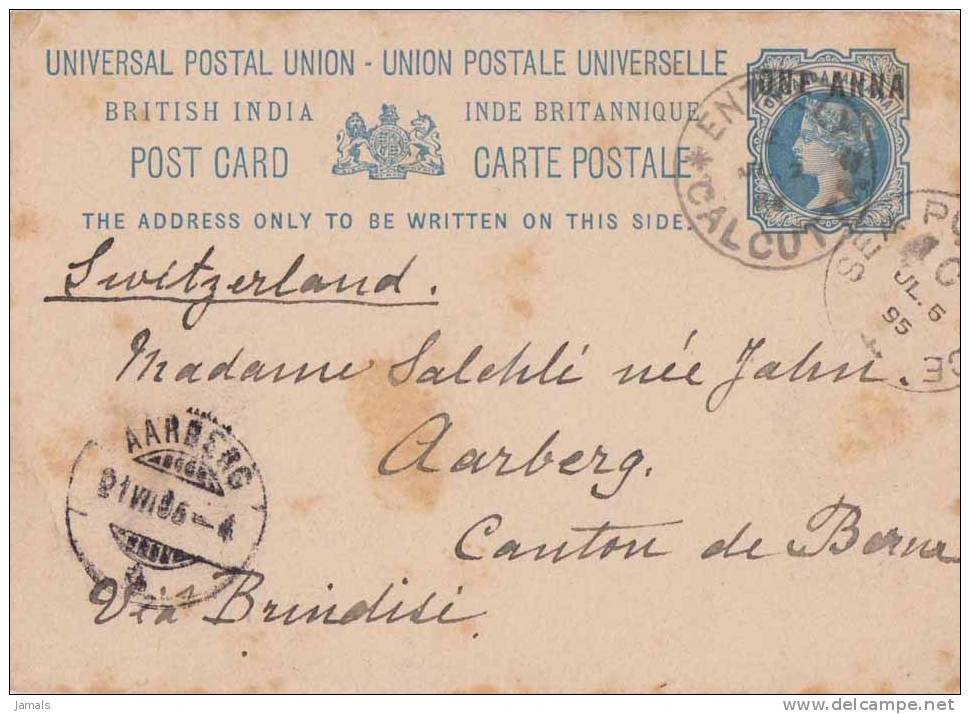 UNIVERSAL POSTAL UNION - UNION POSTALE UNIVERSELLE
BRITISH INDIA INDE BRITANNIQUE
POST CARD CARTE POSTALE
THE ADDRESS ONLY TO BE WRITTEN ON THIS SIDE.
ONE ANNA
CALCUTTA
JL. 2
JL. 6
95
Switzerland.
Madame Salchli née Jahn.
Aarberg.
Canton de Berne
Via Brindisi
AARBERG
jamals
www.delcampe.net